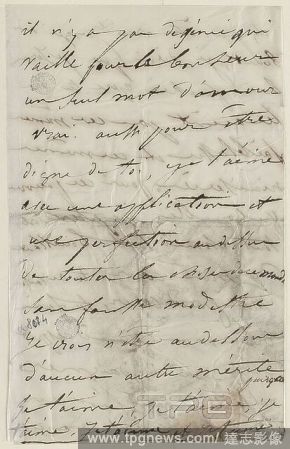 il n'y a pas de génie qui
vaille pour le bonheur
un seul mot d'amour
vrai. aussi pour être
digne de toi, je t'aime
avec une application et
une perfection au dessus
de toutes les choses du monde
sans fausse modestie
je crois n'être au dessous
d'aucun autre mérite
puisque
je t'aime, je t'aime, je
t'aime, je t'aime et t'aime
TPG
www.tpgnews.com 達志影像